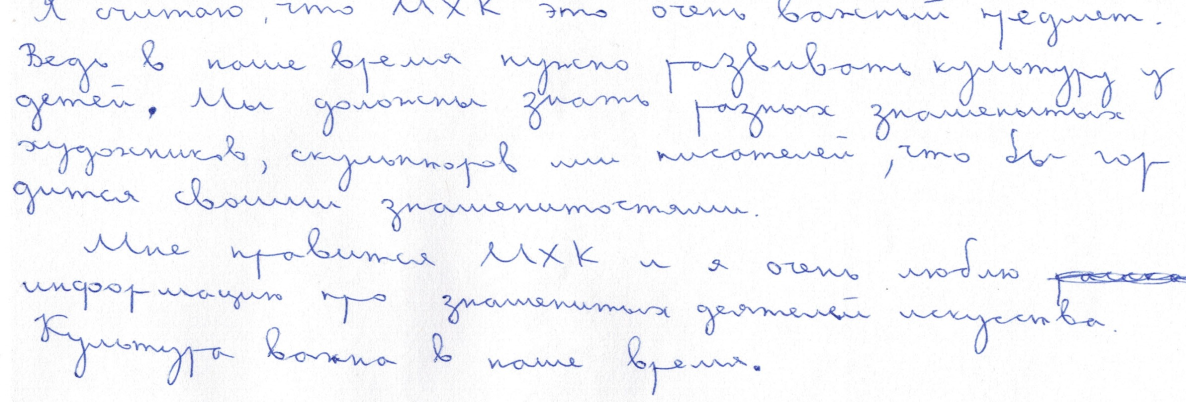 Я считаю, что МХК это очень важный предмет.
Ведь в наше время нужно развивать культуру у
детей. Мы должны знать разных знаменытых
художников, скульпторов или писателей, что бы гор
дится своими знаменитостями.
Мне нравится МХК и я очень люблю
информацию про знаменитых деятелей искусства.
Культура важна в наше время.